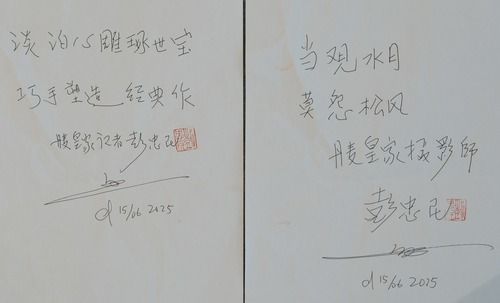 淡泊心雕琢世宝
巧手塑造经典作
皇家记者彭忠民
d 15/06 2025
当观水月
莫怨松风
皇家摄影師
彭忠民
d 15/06 2025